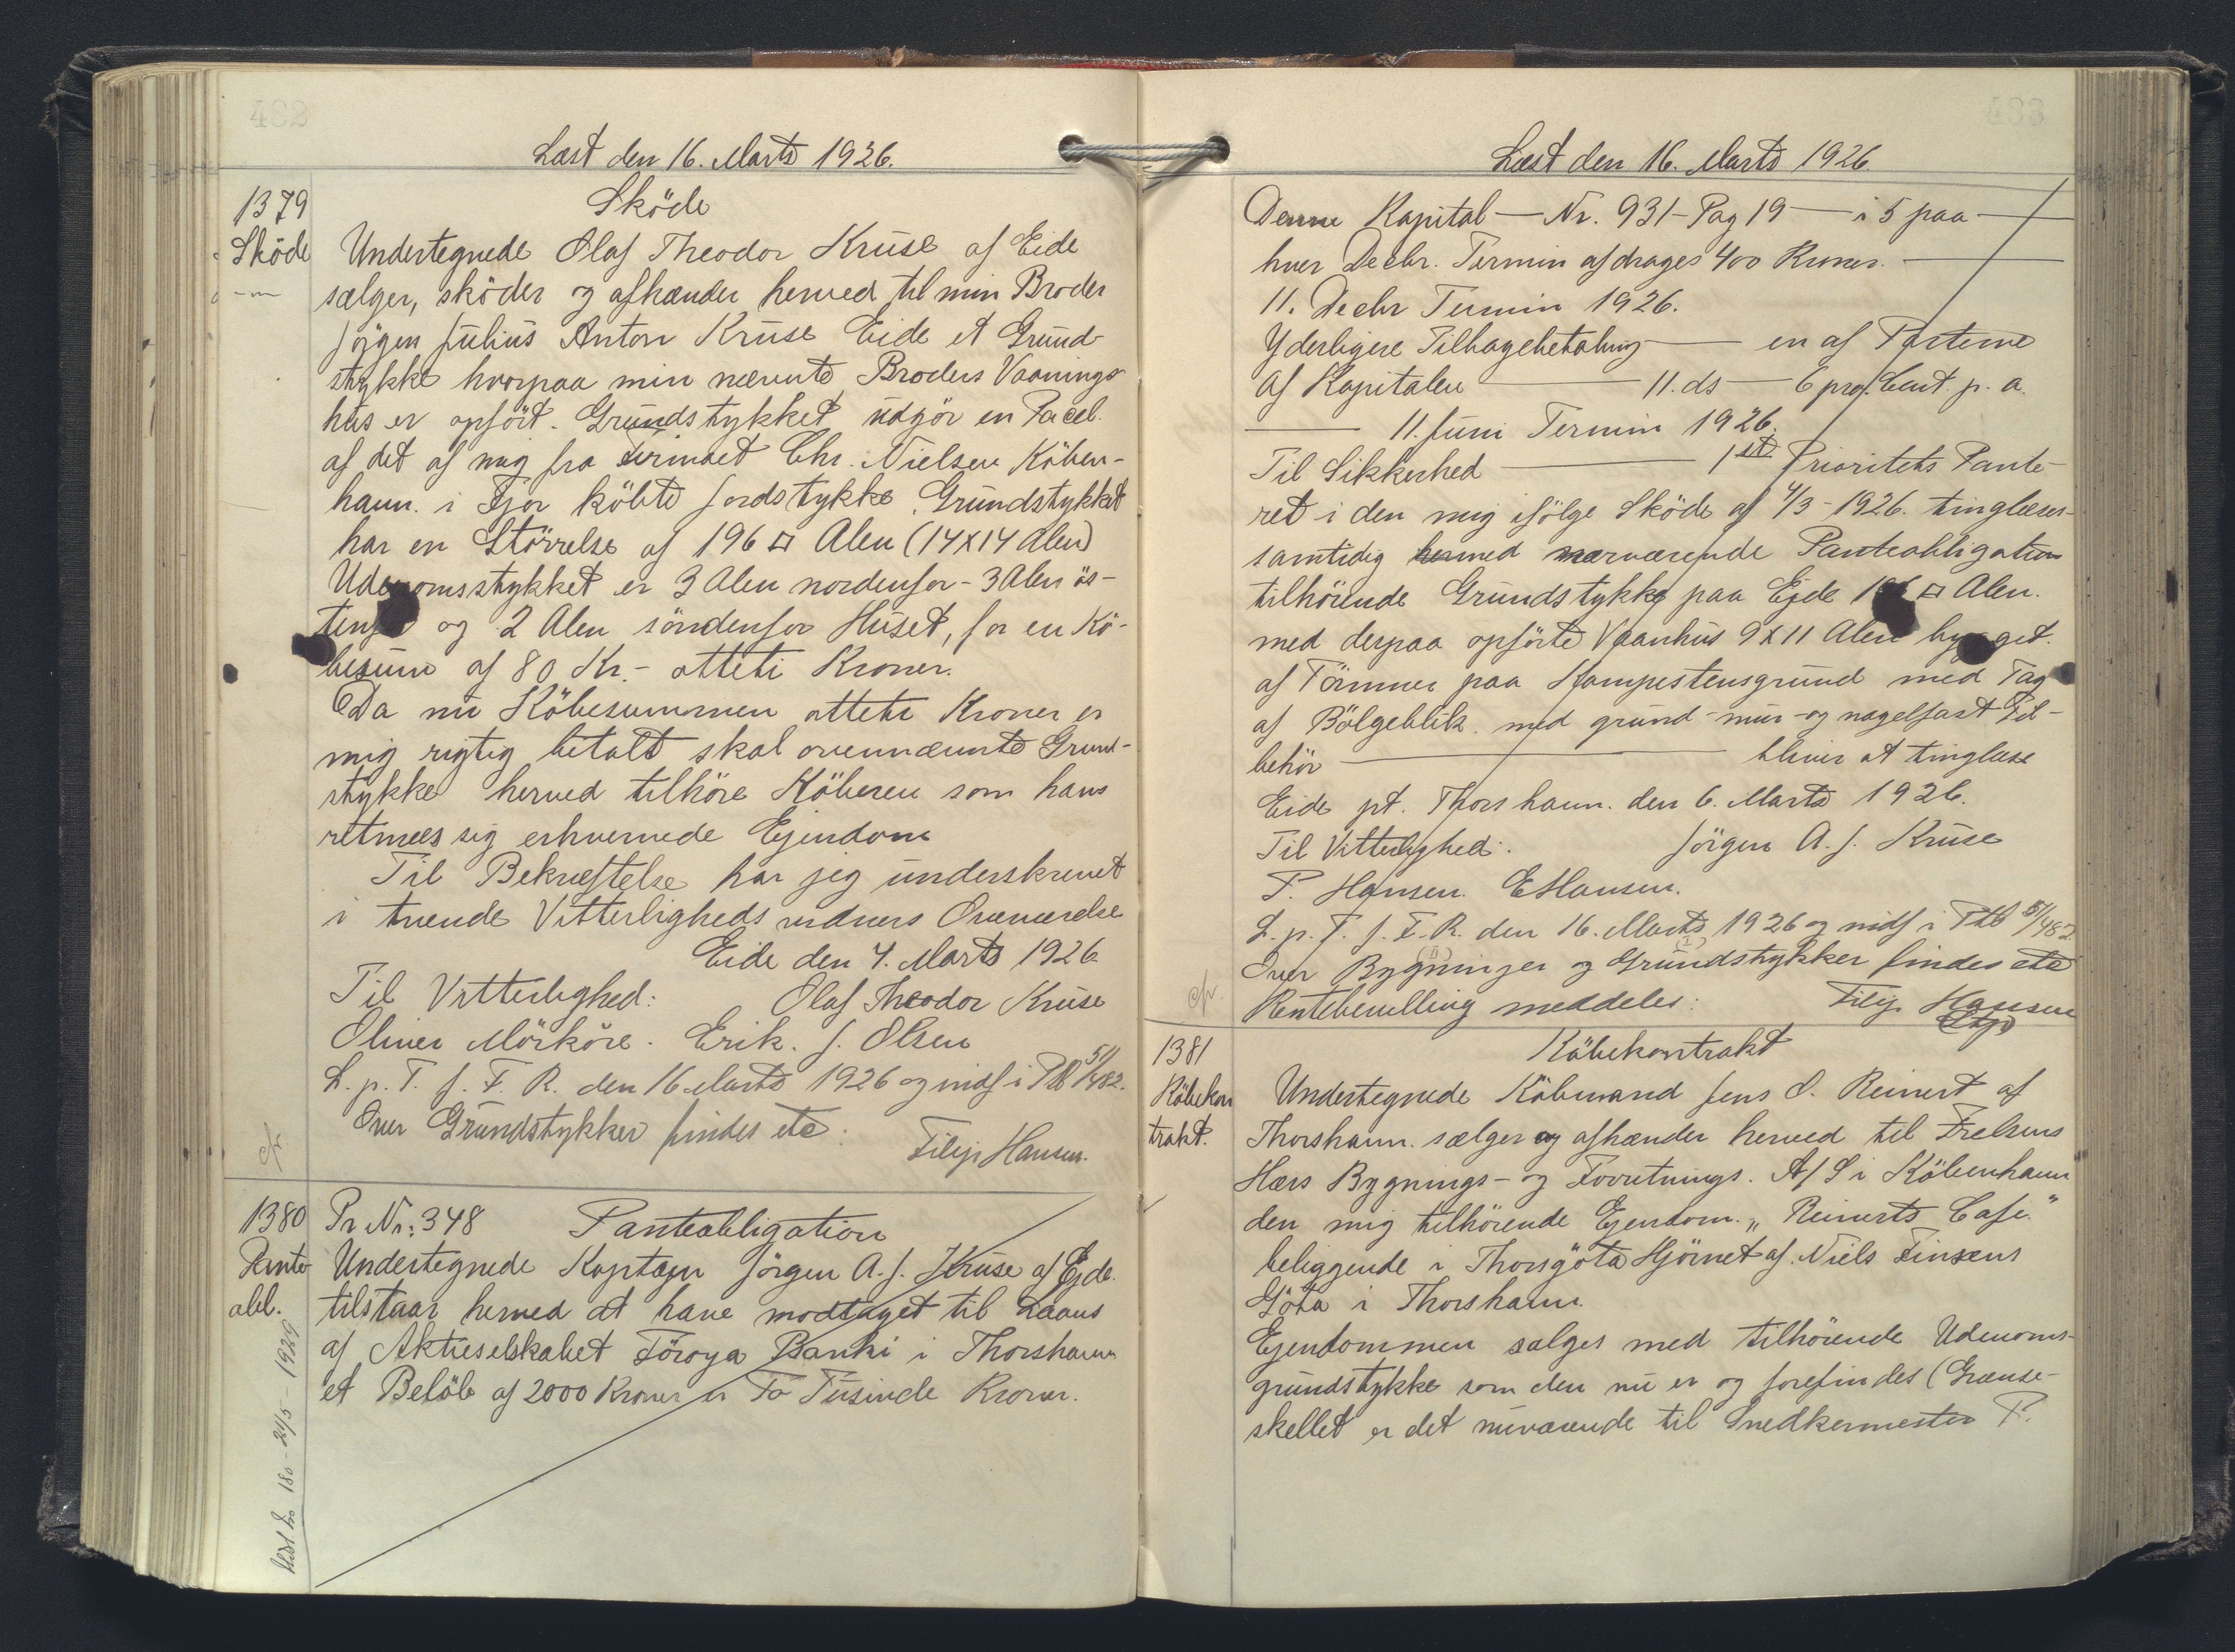 482
Læst den 16. Marts 1926.
1379
Sköde
Sköde
Undertegnede Olaf Theodor Kruse af Eide
sælger, sköder og afhænder herved til min Broder
Jörgen Julius Anton Kruse Eide et Grund-
stykke hvorpaa min nævnte Broders Vaanings-
hus er opfört. Grundstykket udgör en Parcel
af det af mig fra Chr. Nielsen Köben-
havn. i Fjor köbte Jordstykke. Grundstykket
har en Störrelse af 196 □ Alen (14X14 Alen)
Udenomsstykket er 3 Alen nordenfor - 3 Alen ös-
tenfor og 2 Alen söndenfor Huset, for en Kö-
besum af 80 Kr. - otteti Kroner.
Da nu Köbesummen otteti Kroner er
mig rigtig betalt skal ovennævnte Grund-
stykke herved tilhöre Köberen som hans
retmæssig erhvervede Ejendom
Til Bekræftelse har jeg underskrevet
i tvende Vitterligheds vidners Overværelse
Eide den 4. Marts 1926
Til Vitterlighed: Olaf Theodor Kruse
Oliver Mörköre. Erik. J. Olsen
L. p. T. f. F. R. den 16 Marts 1926 og indf i Ptb 51/482.
Over Grundstykker findes etc: Filip Hansen.
cfr.
1380
Pante
obl.
Pr Nr: 348 Panteobligation
Undertegnede Kaptajn Jörgen A. J. Kruse af Ejde.
tilstaar herved at have modtaget til Laans
af Aktieselskabet Föroya Banki i Thorshavn
et Belöb af 2000 Kroner er To Tusinde Kroner.
180 - 21/5 - 1929
483
Læst den 16. Marts 1926.
Denne Kapital — Nr. 931 - Pag 19 — i 5 paa —
hver Decbr. Termin afdrages 400 Kroner. —
11. Decbr Termin 1926.
Yderligere Tilbagebetaling — en af Parterne
af Kapitalen — 11. ds — 6 pro. Cent. p. a.
— 11. Juni Termin 1926.
Til Sikkerhed — 1ste Prioritets Pante-
ret i den mig ifölge Sköde af 4/3 - 1926. tinglæses
samtidig hermed nærværende Panteobligation
tilhörende Grundstykke paa Ejde 196 □ Alen.
med derpaa opförte Vaanhus 9 X 11 Alen bygget.
af Tömmer paa Kampestensgrund med Tag
af Bölgeblik. med grund - mur - og nagelfast Til-
behör — bliver at tinglæse
Eide pt. Thorshavn. den 6. Marts 1926.
Til Vitterlighed: Jörgen A. J. Kruse
P. Hansen. E Hansen.
L. p. T. f. F. R. den 16. Marts 1926 og indf i Ptb 51/482
Over Bygninger og Grundstykker findes etc
cfr.
Rentebevilling meddeles: Filip Hansen
1381
Köbekon
trakt.
Köbekontrakt
Undertegnede Köbmand Jens O. Reinert af
Thorshavn. sælger og afhænder herved til Frelsens
Hærs Bygnings- og Forretnings. A/S i Köbenhavn
den mig tilhörende Ejendom. „Reinerts Cafe."
beliggende i Thorsgöta Hjörnet af Niels Finsens
Göta i Thorshavn.
Ejendommen sælges med tilhörende Udenoms-
grundstykke som den nu er og forefindes (Grænse-
skellet er det nuværende til Snedkermester P.